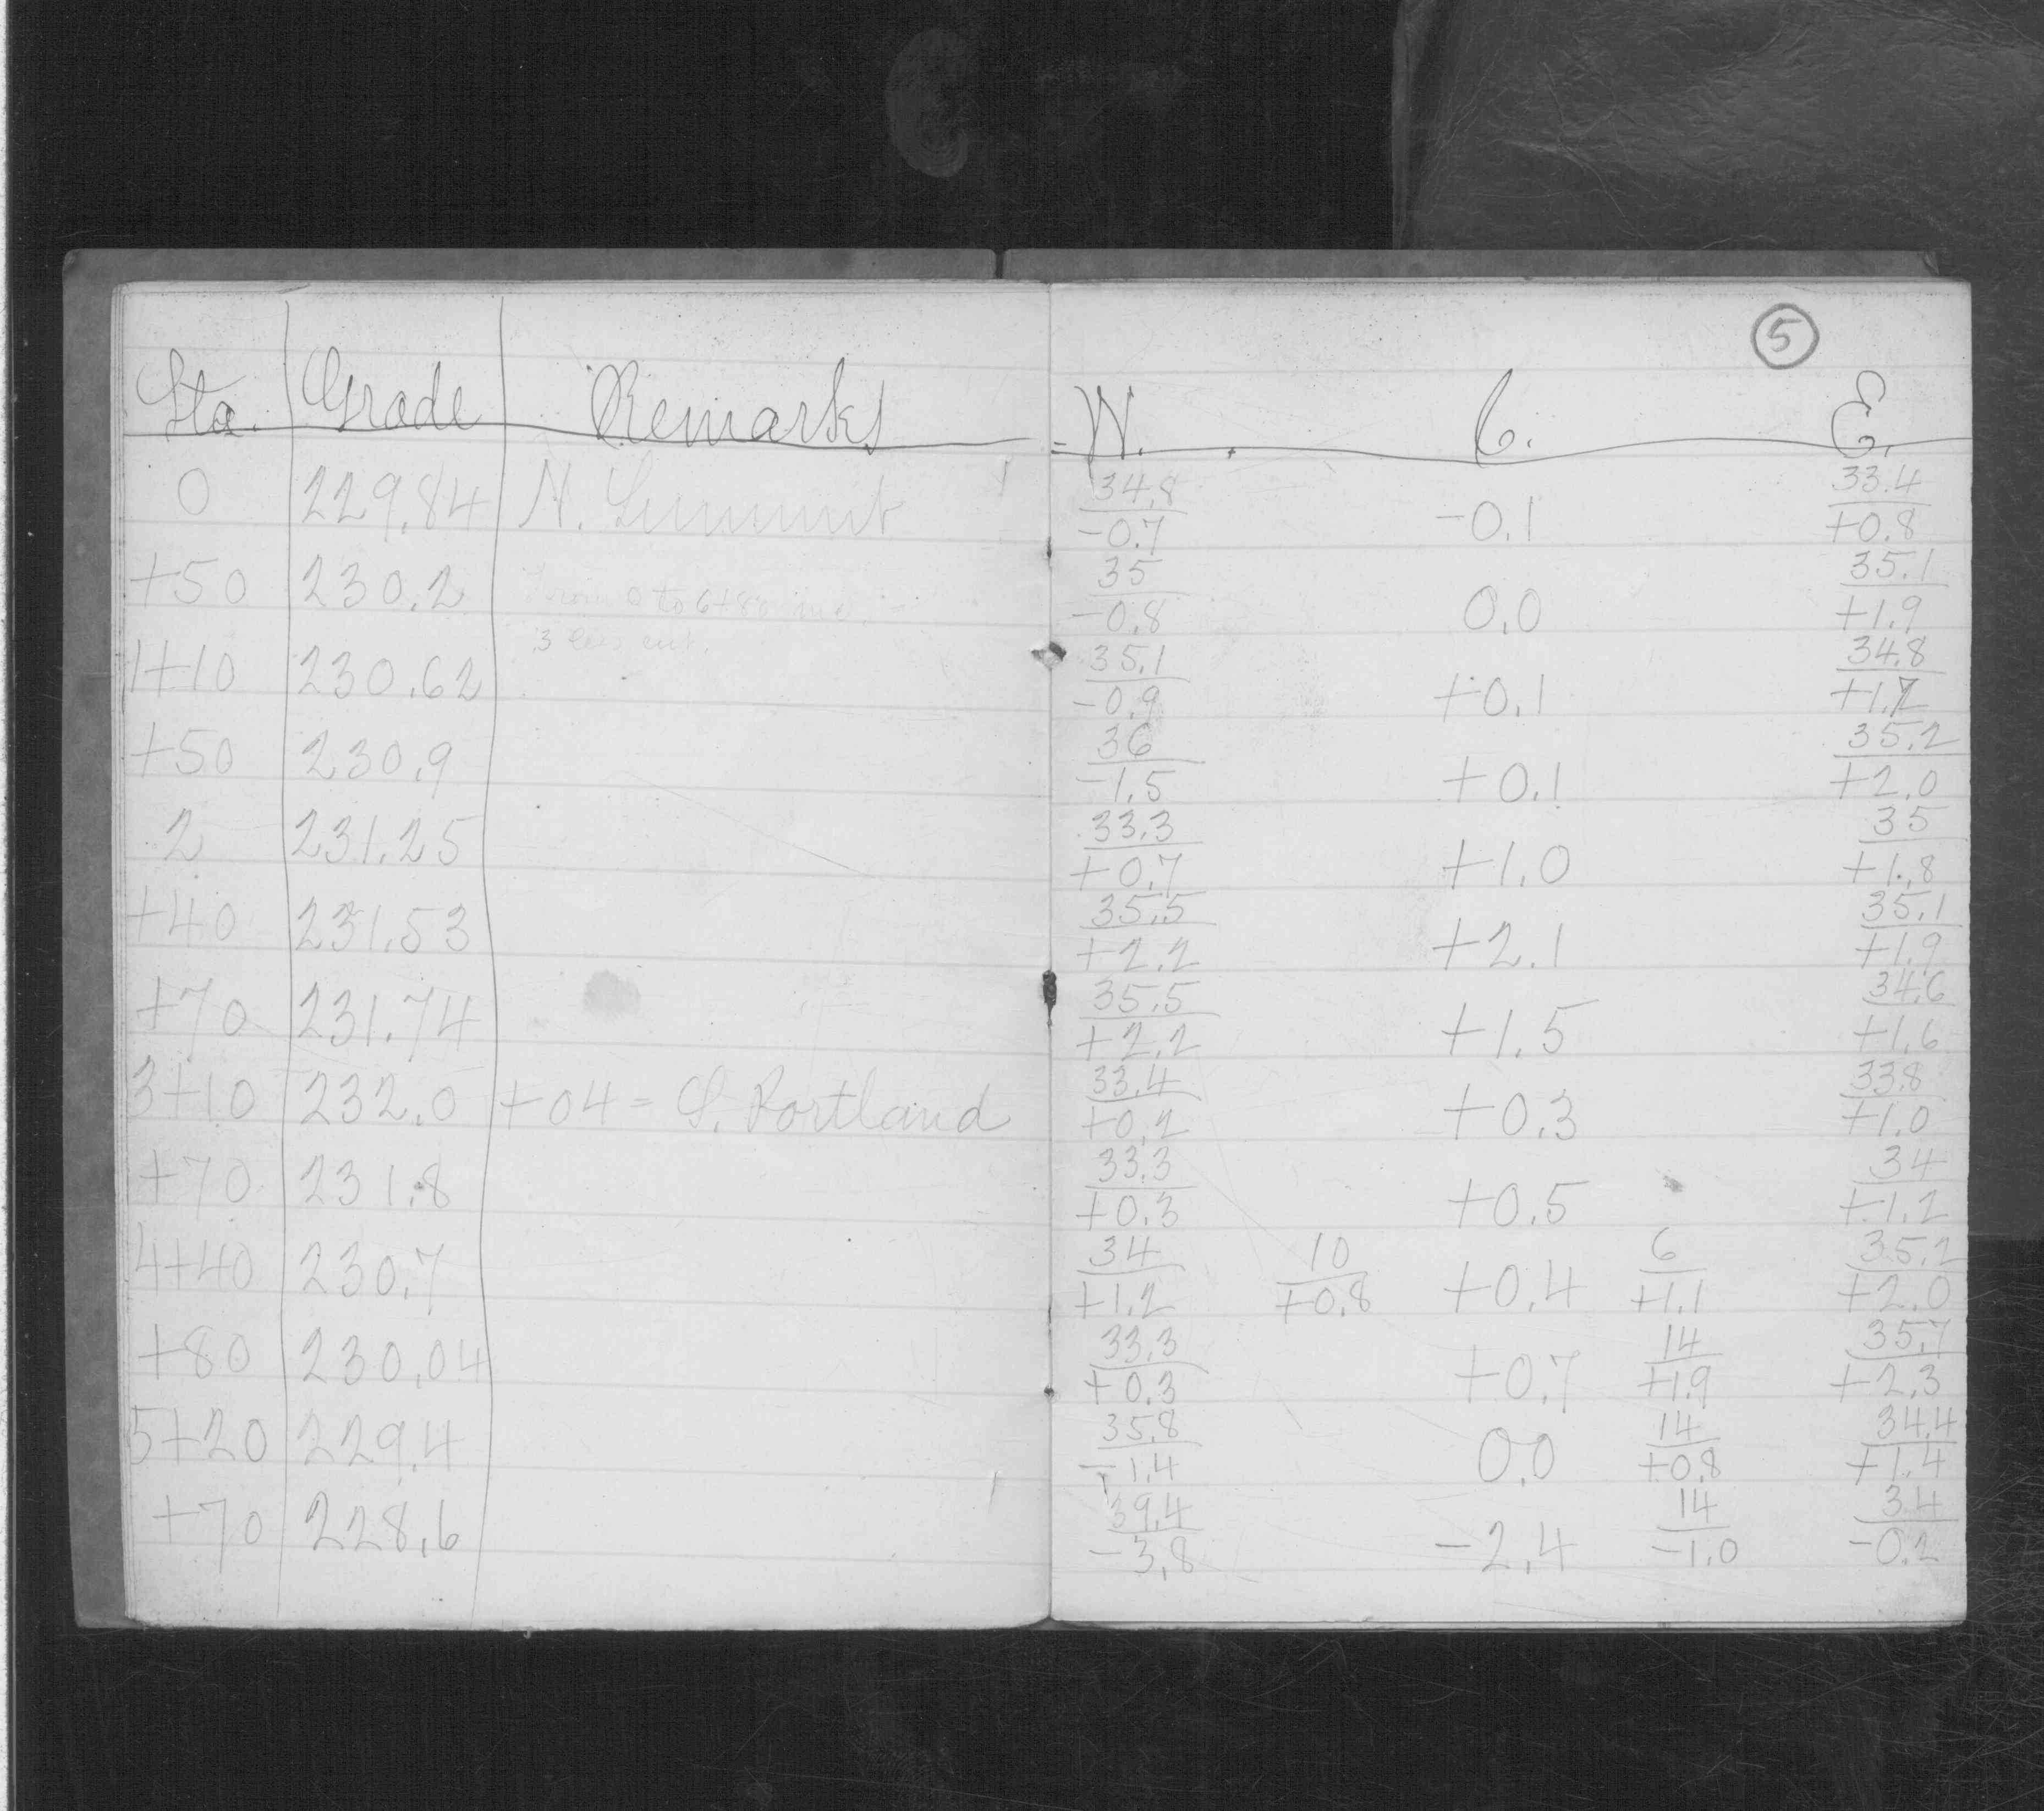 5
Sta. Grade Remarks W. C. E.
0 229.84 N. Summit 34.8/-0.7 -0.1 33.4/+0.8
+50 230.2 From 0 to 6+80 35/-0.8 0.0 35.1/+1.9
.3 less cut.
1+10 230.62 35.1/-0.9 +0.1 34.8/+1.7
+50 230.9 36/-1.5 +0.1 35.2/+2.0
2 231.25 33.3/+0.7 +1.0 35/+1.8
+40 231.53 35.5/+2.2 +2.1 35.1/+1.9
+70 231.74 35.5/+2.2 +1.5 34.6/+1.6
3+10 232.0 +04 = S. Portland 33.4/+0.2 +0.3 33.8/+1.0
+70 231.8 33.3/+0.3 +0.5 34/+1.2
4+40 230.7 34/+1.2 10/+0.8 +0.4 6/+1.1 35.2/+2.0
+80 230.04 33.3/+0.3 +0.7 14/+1.9 35.7/+2.3
5+20 229.4 35.8/-1.4 0.0 14/+0.8 34.4/+1.4
+70 228.6 39.4/-3.8 -2.4 14/-1.0 34/-0.2